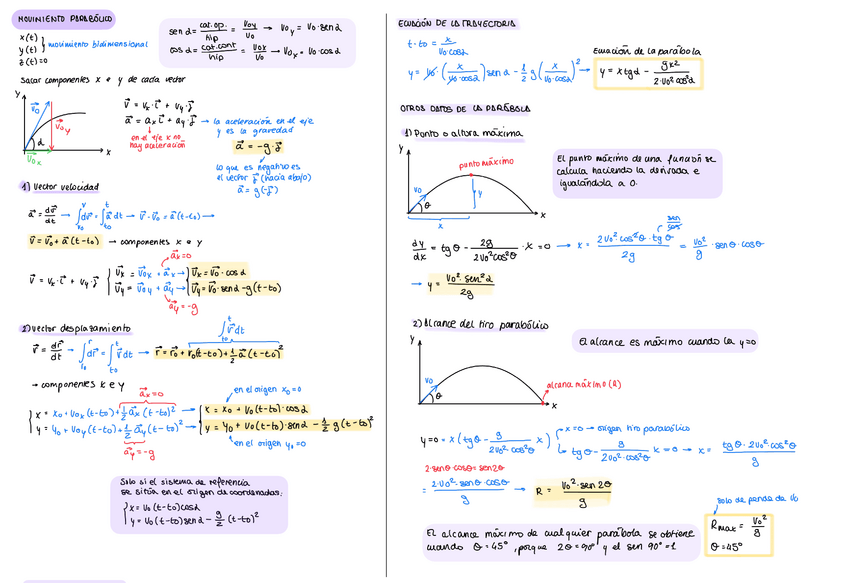 MOVIMIENTO PARABÓLICO
x(t)
y(t) } movimiento bidimensional
z(t)=0
sen α = cat.op. / hip = v₀y / v₀ → v₀y = v₀·sen α
cos α = cat.cont / hip = v₀x / v₀ → v₀x = v₀·cos α
Sacar componentes x e y de cada vector
y
v⃗₀
v⃗₀y
α
v⃗₀x
x
v⃗ = vₓ·i⃗ + v_y·j⃗
a⃗ = aₓi⃗ + a_y·j⃗ → la aceleración en el eje
y es la gravedad
en el eje x no
hay aceleración
a⃗ = -g·j⃗
lo que es negativo es
el vector j⃗ (hacia abajo)
a⃗ = g(-j⃗)
1) Vector velocidad
a⃗ = dv⃗/dt → ∫dv⃗ = ∫a⃗ dt → v⃗ - v⃗₀ = a⃗(t-t₀) →
v⃗ = v⃗₀ + a⃗(t-t₀) → componentes x e y
a⃗ₓ=0
v⃗ = vₓ·i⃗ + v_y·j⃗ { v⃗ₓ = v⃗₀ₓ + a⃗ₓ → v⃗ₓ = v⃗₀·cos α
v⃗y = v⃗₀y + a⃗y → v⃗y = v⃗₀·sen α - g(t-t₀)
a⃗y = -g
2) Vector desplazamiento
∫v⃗dt
v⃗ = dr⃗/dt → ∫dr⃗ = ∫v⃗dt → r⃗ = r⃗₀ + v₀(t-t₀) + 1/2 a⃗(t-t₀)²
→ componentes x e y
a⃗ₓ=0
en el origen x₀=0
x = x₀ + v₀ₓ(t-t₀) + 1/2 a⃗ₓ(t-t₀)² → x = x₀ + v₀(t-t₀)·cos α
y = y₀ + v₀y(t-t₀) + 1/2 a⃗y(t-t₀)² → y = y₀ + v₀(t-t₀)·sen α - 1/2 g(t-t₀)²
a⃗y = -g
en el origen y₀=0
Solo si el sistema de referencia
se sitúa en el origen de coordenadas:
x = v₀(t-t₀)cos α
y = v₀(t-t₀)sen α - g/2 (t-t₀)²
ECUACIÓN DE LA TRAYECTORIA
t-t₀ = x / v₀·cos α
Ecuación de la parábola
y = v₀·(x / v₀·cos α) sen α - 1/2 g (x / v₀·cos α)² → y = x tg α - gx² / 2·v₀² cos²α
OTROS DATOS DE LA PARÁBOLA
1) Punto o altura máxima
y
punto máximo
v₀
θ
y
x
x
El punto máximo de una función se
calcula haciendo la derivada e
igualándola a 0.
sen / cos
dy/dx = tg θ - 2g / 2v₀²cos²θ · x = 0 → x = 2v₀²cos²θ·tg θ / 2g = v₀²/g · sen θ·cos θ
→ y = v₀²·sen²α / 2g
2) Alcance del tiro parabólico
El alcance es máximo cuando la y=0
y
v₀
θ
alcance máximo (R)
x
y=0 = x (tg θ - g / 2v₀²cos²θ x) x=0 → origen tiro parabólico
tg θ - g / 2v₀²·cos²θ x = 0 → x = tg θ·2v₀²·cos²θ / g
2·sen θ cos θ = sen 2θ
= 2·v₀²·sen θ·cos θ / g → R = v₀²·sen 2θ / g
solo depende de v₀
Rmax = v₀² / g
θ = 45°
El alcance máximo de cualquier parábola se obtiene
cuando θ = 45°, porque 2θ = 90° y el sen 90° = 1